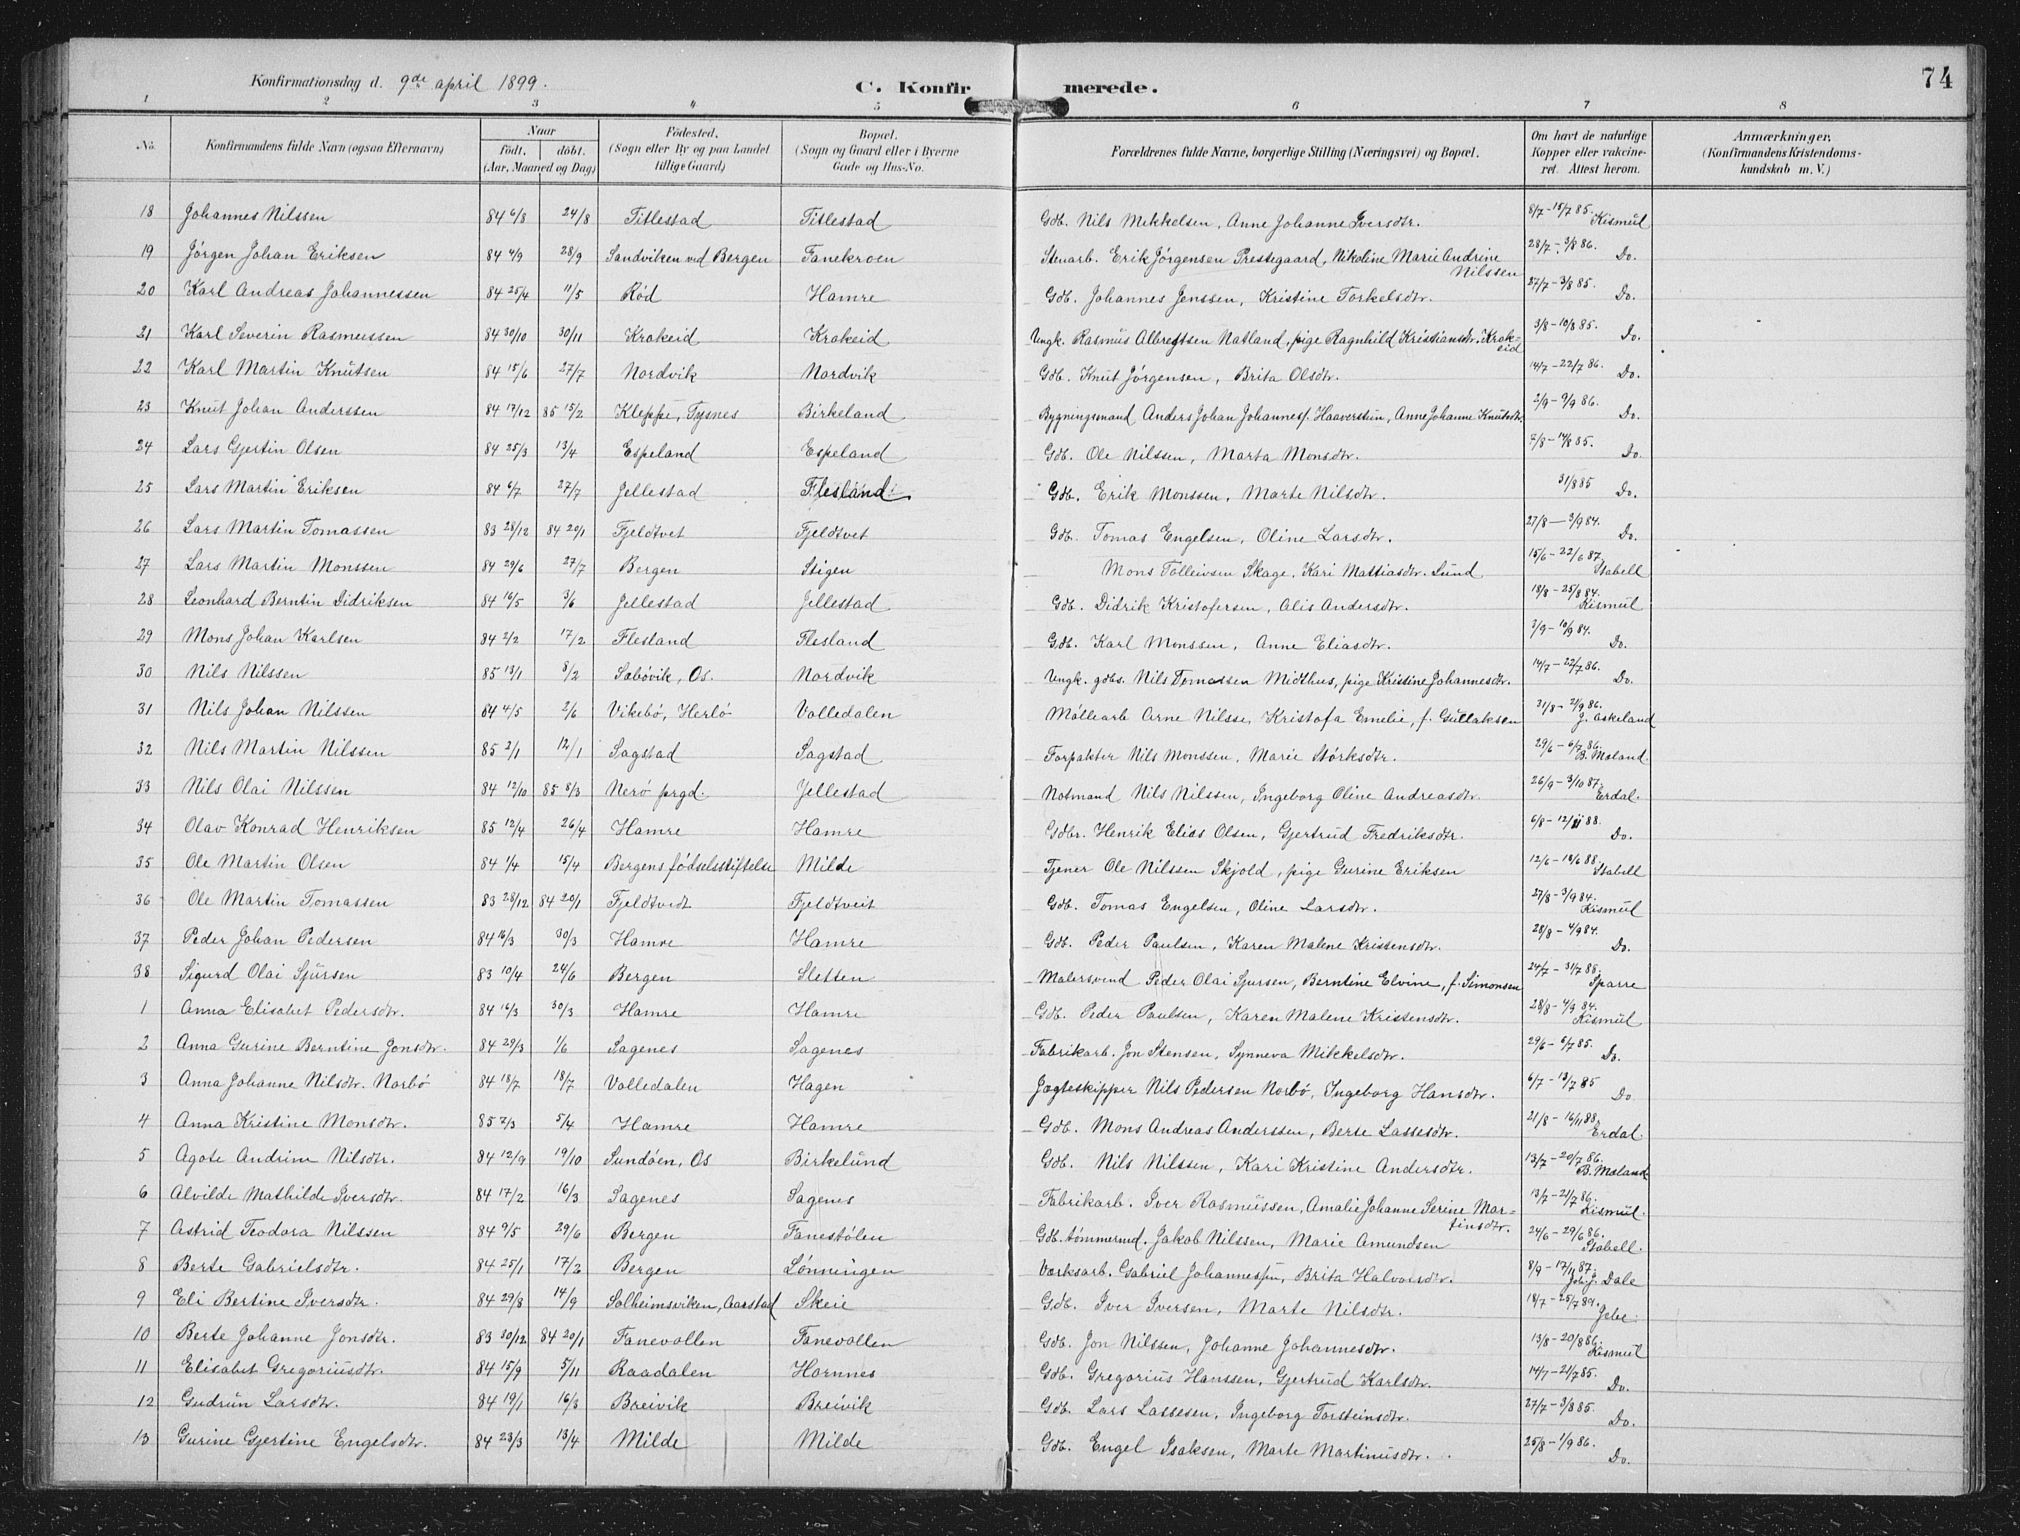 74
Konfirmationsdag d. 9de april 1899.
C. Konfirmerede.
1 2 3 4 5 6 7 8
No. | Konfirmandens fulde Navn (ogsaa Efternavn) | Naar født. døbt. (Aar, Maaned og Dag) | Fødested. (Sogn eller By og paa Landet tillige Gaard) | Bopæl. (Sogn og Gaard eller i Byerne Gade og Hus-No. | Forældrenes fulde Navne, borgerlige Stilling (Næringsvei) og Bopæl. | Om havt de naturlige Kopper eller vakcineret. Attest herom. | Anmærkninger. (Konfirmandens Kristendomskundskab m. V.)
18 Johannes Nilssen 84 6/8 24/8 Titlestad Titlestad Gdb. Nils Mikkelsen, Anne Johanne Iversdtr. 8/7-15/7 85. Kismul
19 Jørgen Johan Eriksen 84 4/9 28/9 Sandviken ved Bergen Fanekroen Stenarb. Erik Jørgensen Prestegaard, Nikoline Marie Andrine Nilssen 28/7-3/8 86. Do.
20 Karl Andreas Johannessen 84 25/4 11/5 Rød Hamre Gdb. Johannes Jenssen, Kristine Torkelsdtr. 27/7-3/8 85. Do.
21 Karl Severin Rasmussen 84 30/10 30/11 Krokeid Krokeid Ungk. Rasmus Albregtsen Natland, pige Ragnhild Kristiansdtr. Krokeid 3/8-10/8 85. Do.
22 Karl Martin Knutsen 84 15/6 27/7 Nordvik Nordvik Gdb. Knut Jørgensen, Brita Olsdtr. 14/7-22/7 86. Do.
23 Knut Johan Anderssen 84 17/12 85 15/2 Kleppe, Tysnes Birkeland Bygningsmand Anders Johan Johannesf. Haaverstun, Anne Johanne Knutsdtr. 2/9-9/9 86. Do.
24 Lars Gjertin Olsen 84 25/3 13/4 Espeland Espeland Gdb. Ole Nilssen, Marta Monsdtr. 7/8-14/8 85. Do.
25 Lars Martin Eriksen 84 6/7 27/7 Jellestad Flesland Gdb. Erik Monssen, Marte Nilsdtr. 31/8 85 Do.
26 Lars Martin Tomassen 83 28/12 84 20/1 Fjeldtvet Fjeldtvet Gdb. Tomas Engelsen, Oline Larsdtr. 27/8-3/9 84. Do.
27 Lars Martin Monssen 84 29/6 27/7 Bergen Stigen Mons Tolleivsen Skage, Kari Mattiasdtr. Lund 15/6-22/6 87. Stabell
28 Leonhard Berntin Didriksen 84 16/5 3/6 Jellestad Jellestad Gdb. Didrik Kristofersen, Alis Andersdtr. 18/8-25/8 84. Kismul
29 Mons Johan Karlsen 84 2/2 17/2 Flesland Flesland Gdb. Karl Monssen, Anne Eliasdtr. 2/9-10/9 84. Do.
30 Nils Nilssen 85 13/1 8/2 Sæbøvik, Os. Nordvik Ungk. gdbs. Nils Tomassen Midthus, pige Kristine Johannesdtr. 14/7-22/7 86. Do.
31 Nils Johan Nilssen 84 4/5 2/6 Vikebø, Herlø Valledalen Møllearb Arne Nilsse, Kristofa Emelie, f. Gullaksen 31/8-2/9 86. J. Askeland
32 Nils Martin Nilssen 85 2/1 12/1 Sagstad Sagstad Forpakter Nils Monssen, Marie Størksdtr. 29/6-6/7 86. B. Mæland.
33 Nils Olai Nilssen 84 12/10 85 8/3 Nerø prgd. Jellestad Notmand Nils Nilssen, Ingeborg Oline Andreasdtr. 26/9-3/10 87. Erdal.
34 Olav Konrad Henriksen 85 12/4 26/4 Hamre Hamre Gdbr. Henrik Elias Olsen, Gjertrud Fredriksdtr. 6/8-12/11 88. Do.
35 Ole Martin Olsen 84 1/4 15/4 Bergens fødselsstiftelse Milde Tjener Ole Nilssen Skjold, pige Gurine Eriksen 12/6-18/6 88. Stabell
36 Ole Martin Tomassen 83 28/12 84 20/1 Fjeldtvedt Fjeldtveit Gdb. Tomas Engelsen, Oline Larsdtr. 27/8-3/9 84. Kismul
37 Peder Johan Pedersen 84 16/3 30/3 Hamre Hamre Gdb. Peder Paulsen, Karen Malene Kristensdtr. 28/8-4/9 84. Do.
38 Sigurd Olai Sjursen 83 10/4 24/6 Bergen Sletten Malersvend Peder Olai Sjursen, Berntine Elvine, f. Simonsen 24/7-31/7 88. Sparre
1 Anna Elisabet Pedersdtr. 84 16/3 30/3 Hamre Hamre Gdb. Peder Paulsen, Karen Malene Kristensdtr. 28/8-4/9 84. Kismul
2 Anna Gurine Berntine Jonsdtr. 84 29/3 1/6 Sagenes Sagenes Fabrikarb. Jon Stensen, Synneva Mikkelsdtr. 29/6-6/7 85. Do.
3 Anna Johanne Nilsdtr. Norbø 84 18/7 18/7 Valledalen Hagen Jægteskipper Nils Pedersen Norbø, Ingeborg Hansdtr. 6/7-13/7 85 Do.
4 Anna Kristine Monsdtr. 85 2/3 5/4 Hamre Hamre Gdb. Mons Andreas Anderssen, Berte Lassesdtr. 21/8-16/11 88. Erdal
5 Agote Andrine Nilsdtr. 84 12/9 19/10 Sundøen, Os Birkelund Gdb. Nils Nilssen, Kari Kristine Andersdtr. 13/7-20/7 86. B. Mæland
6 Alvilde Mathilde Iversdtr. 84 17/2 16/3 Sagenes Sagenes Fabrikarb. Iver Rasmussen, Amalie Johanne Serine Martinsdtr. 13/7-21/7 86. Kismul.
7 Astrid Teodora Nilssen 84 9/5 29/6 Bergen Fanestølen Gdb. tømmermd. Jakob Nilssen, Marie Amundsen 24/6-29/6 86. Stabell.
8 Berte Gabrielsdtr. 84 25/1 17/2 Bergen Lønningen Værksarb. Gabriel Johannessen, Brita Halvorsdtr. 8/9-17/11 87. Joh. J. Dale
9 Eli Bertine Iversdtr. 84 29/8 14/9 Solheimsviken, Aarstad Skeie Gdb. Iver Iversen, Marte Nilsdtr. 18/7-25/7 89. Jebe.
10 Berte Johanne Jonsdtr. 83 30/12 84 20/1 Fanevollen Fanevollen Gdb. Jon Nilssen, Johanne Johannesdtr. 13/8-20/8 86. Kismul
11 Elisabet Gregoriusdtr. 84 15/9 5/11 Raadalen Hornnes Gdb. Gregorius Hanssen, Gjertrud Karlsdtr. 14/7-21/7 85. Do.
12 Gudrun Larsdtr. 84 19/1 16/3 Breivik Breivik Gdb. Lars Lassesen, Ingeborg Torsteinsdtr. 27/7-3/8 85. Do.
13 Gurine Gjertine Engelsdtr. 84 23/3 13/4 Milde Milde Gdb. Engel Isaksen, Marte Martinusdtr. 25/8-1/9 86. Do.